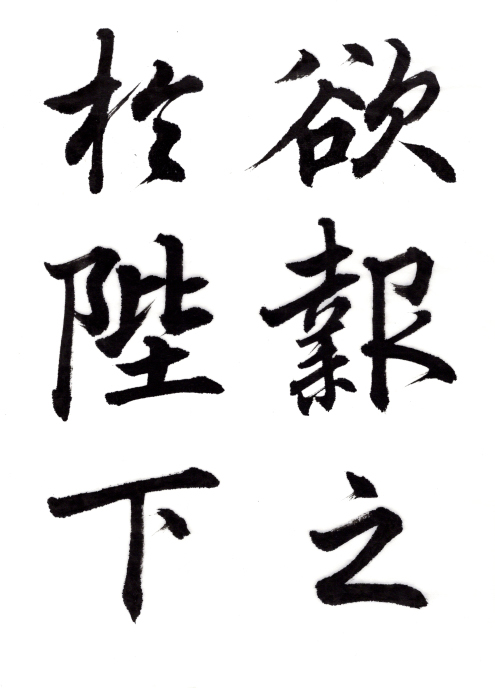 欲報之
於陛下